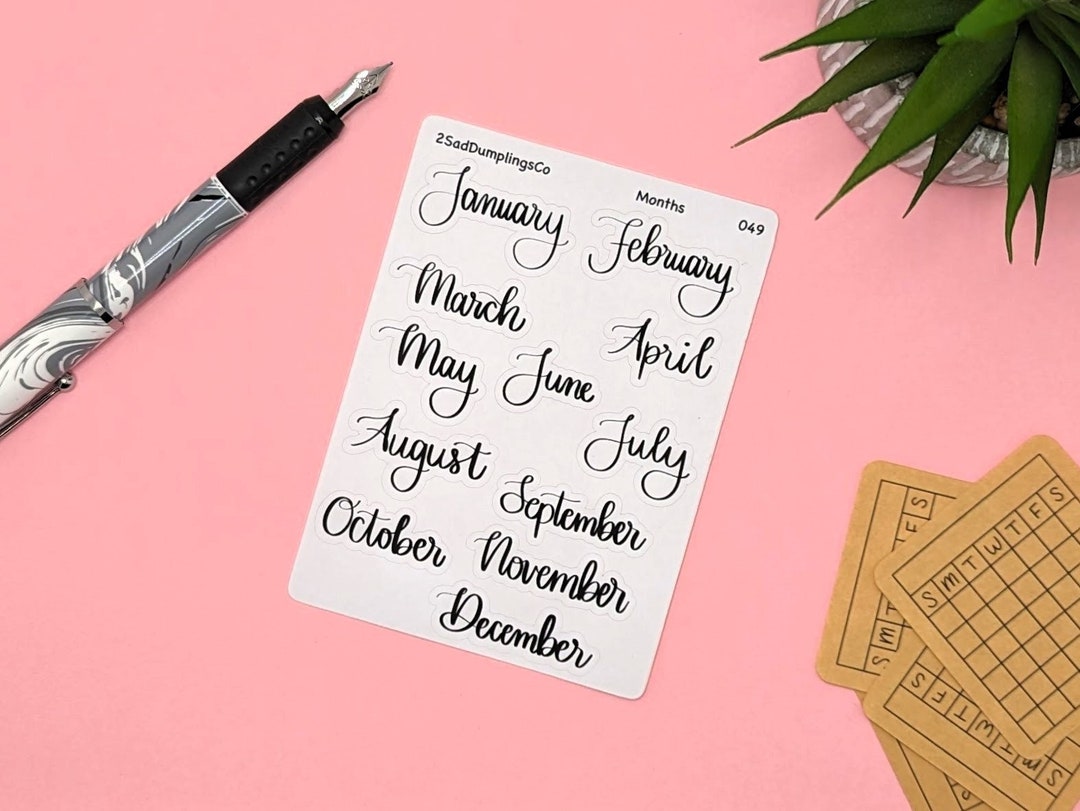 2SadDumplingsCo
Months
049
January
February
March
April
May
June
July
August
September
October
November
December
S M T W T F S
S M
F S
S F T W T M S